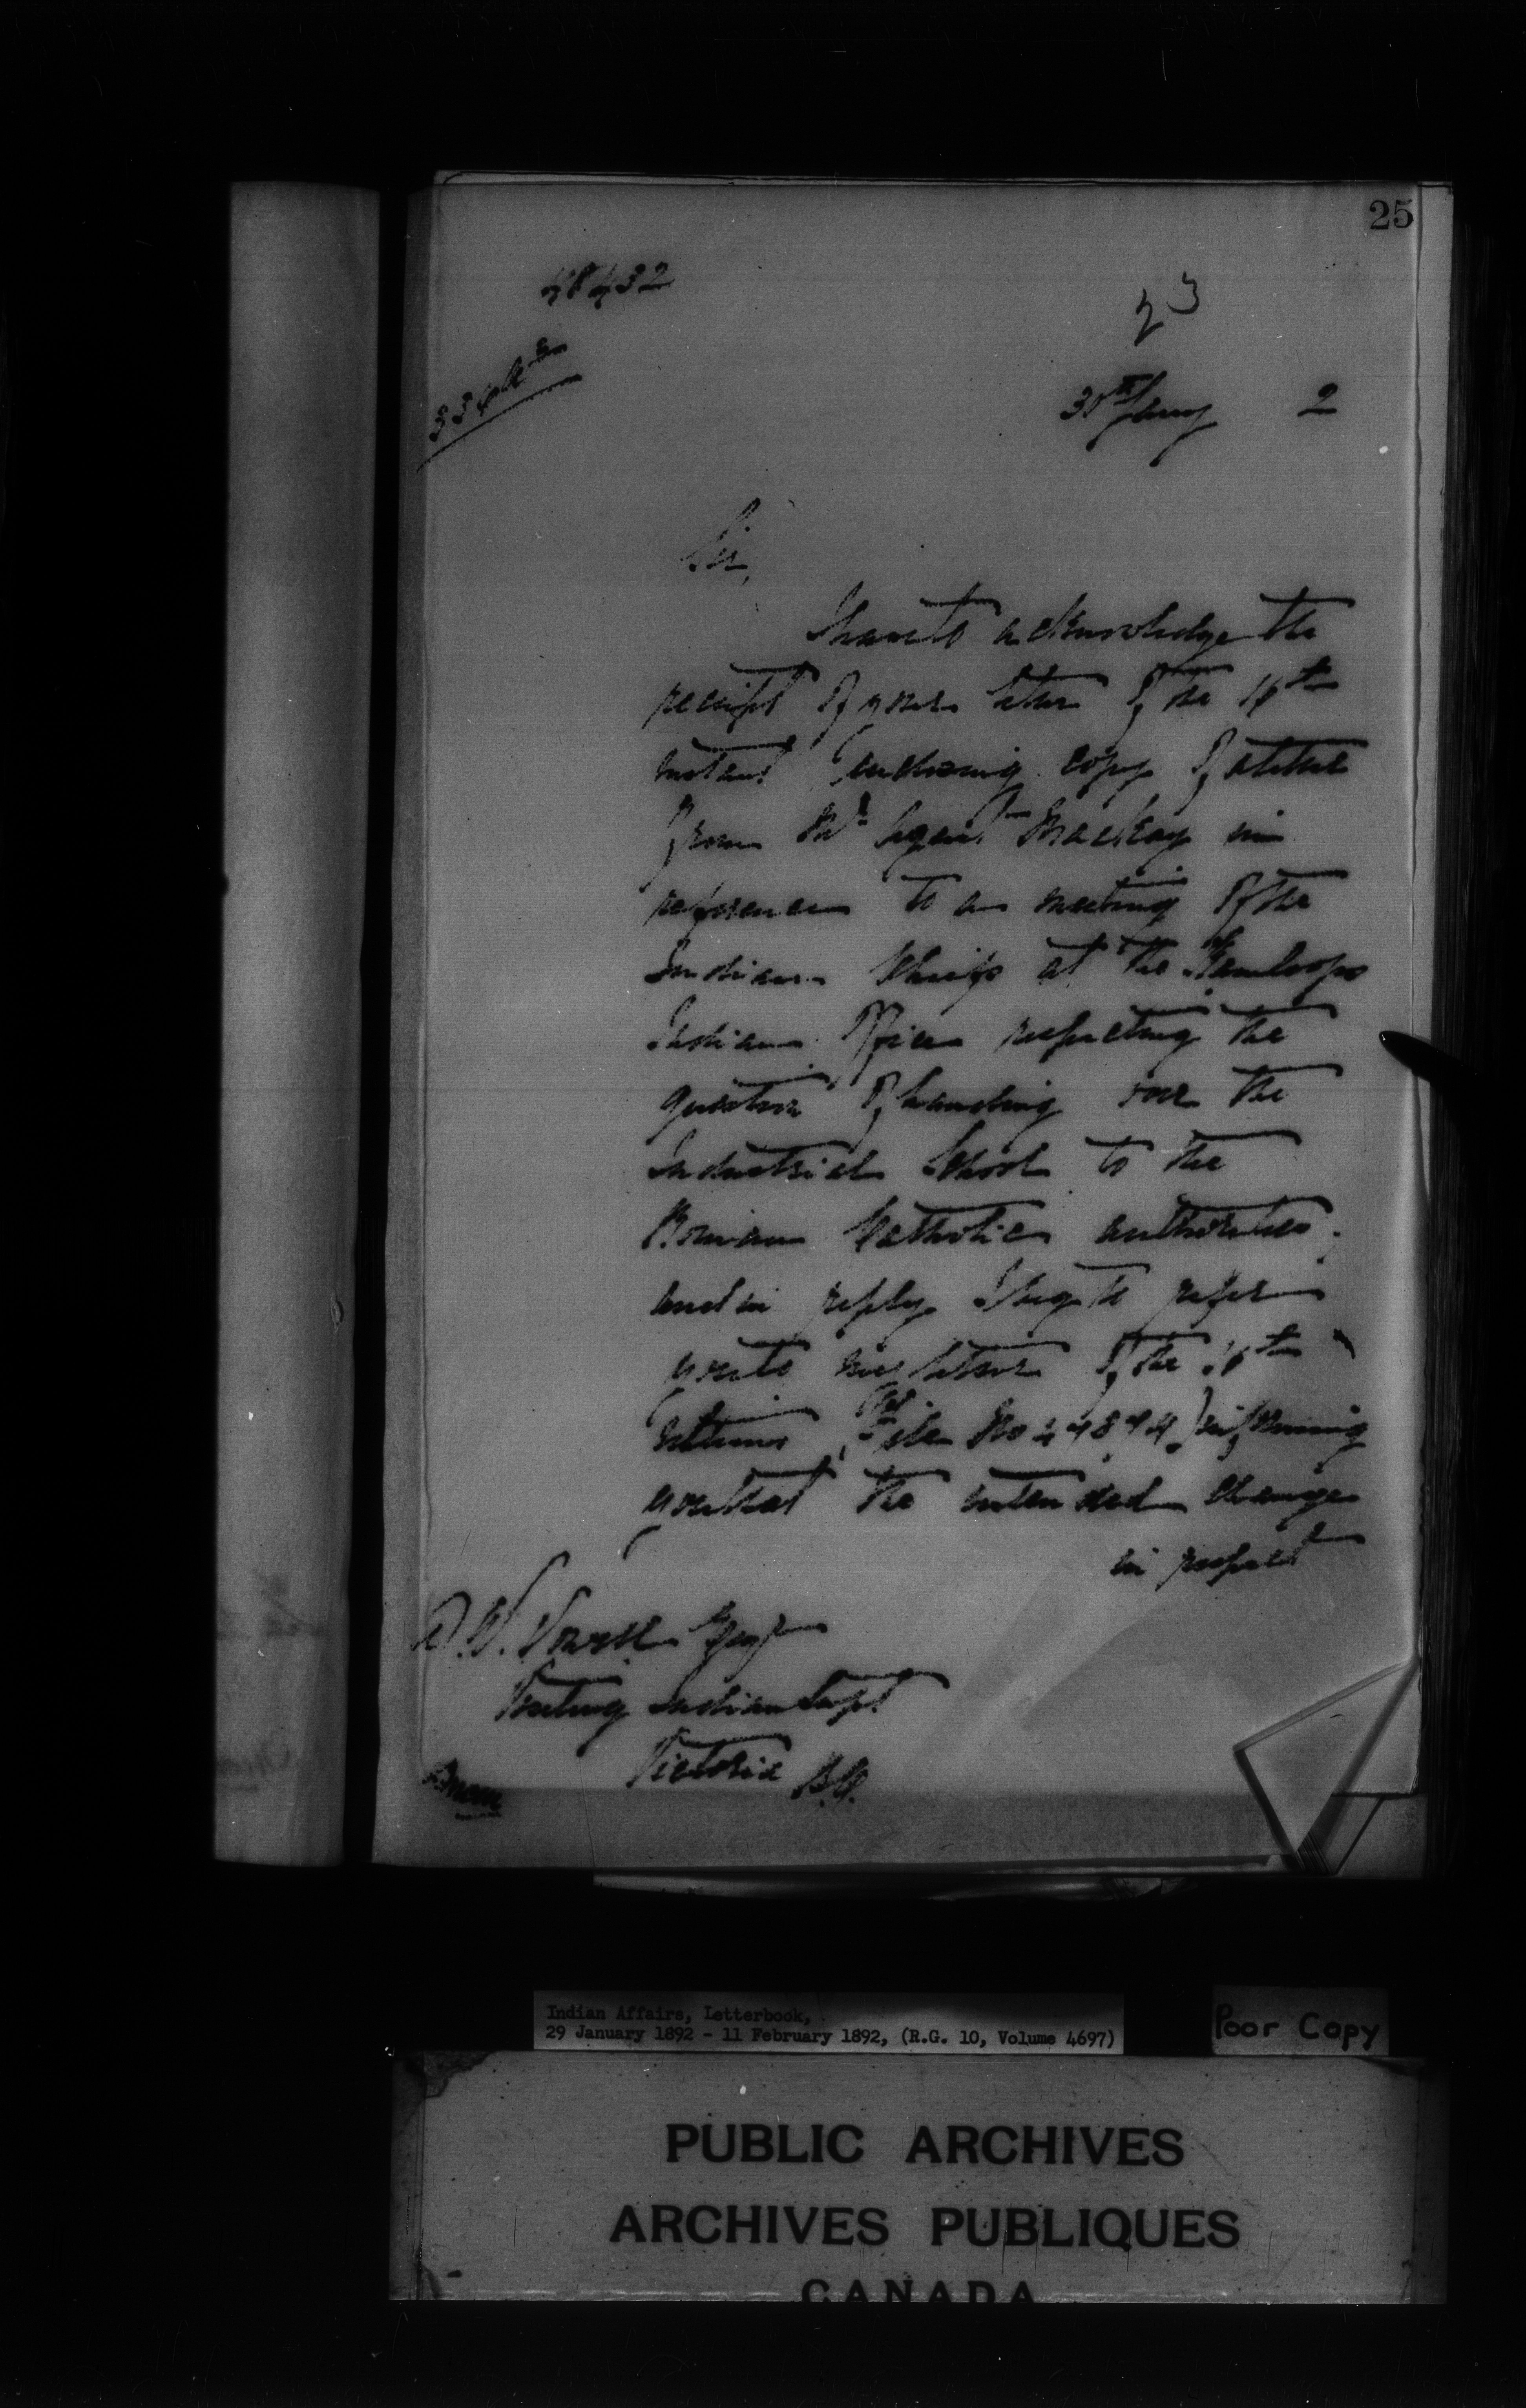 25
23
30th Jany 2
Sir,
I have to acknowledge the
receipt of your letter of the 16th
instant enclosing copy of a letter
from Mr Agent Mackay in
reference to a meeting of the
Indian Chiefs at the Kamloops
Indian Office respecting the
question of handing over the
Industrial School to the
Roman Catholic authorities,
and in reply I beg to refer
you to my letter of the
ultimo, File No informing
you that the intended change
in respect
A. W. Vowell Esq
Visiting Indian Supt
Victoria B.C.
Indian Affairs, Letterbook,
29 January 1892 - 11 February 1892, (R.G. 10, Volume 4697)
Poor Copy
PUBLIC ARCHIVES
ARCHIVES PUBLIQUES
CANADA